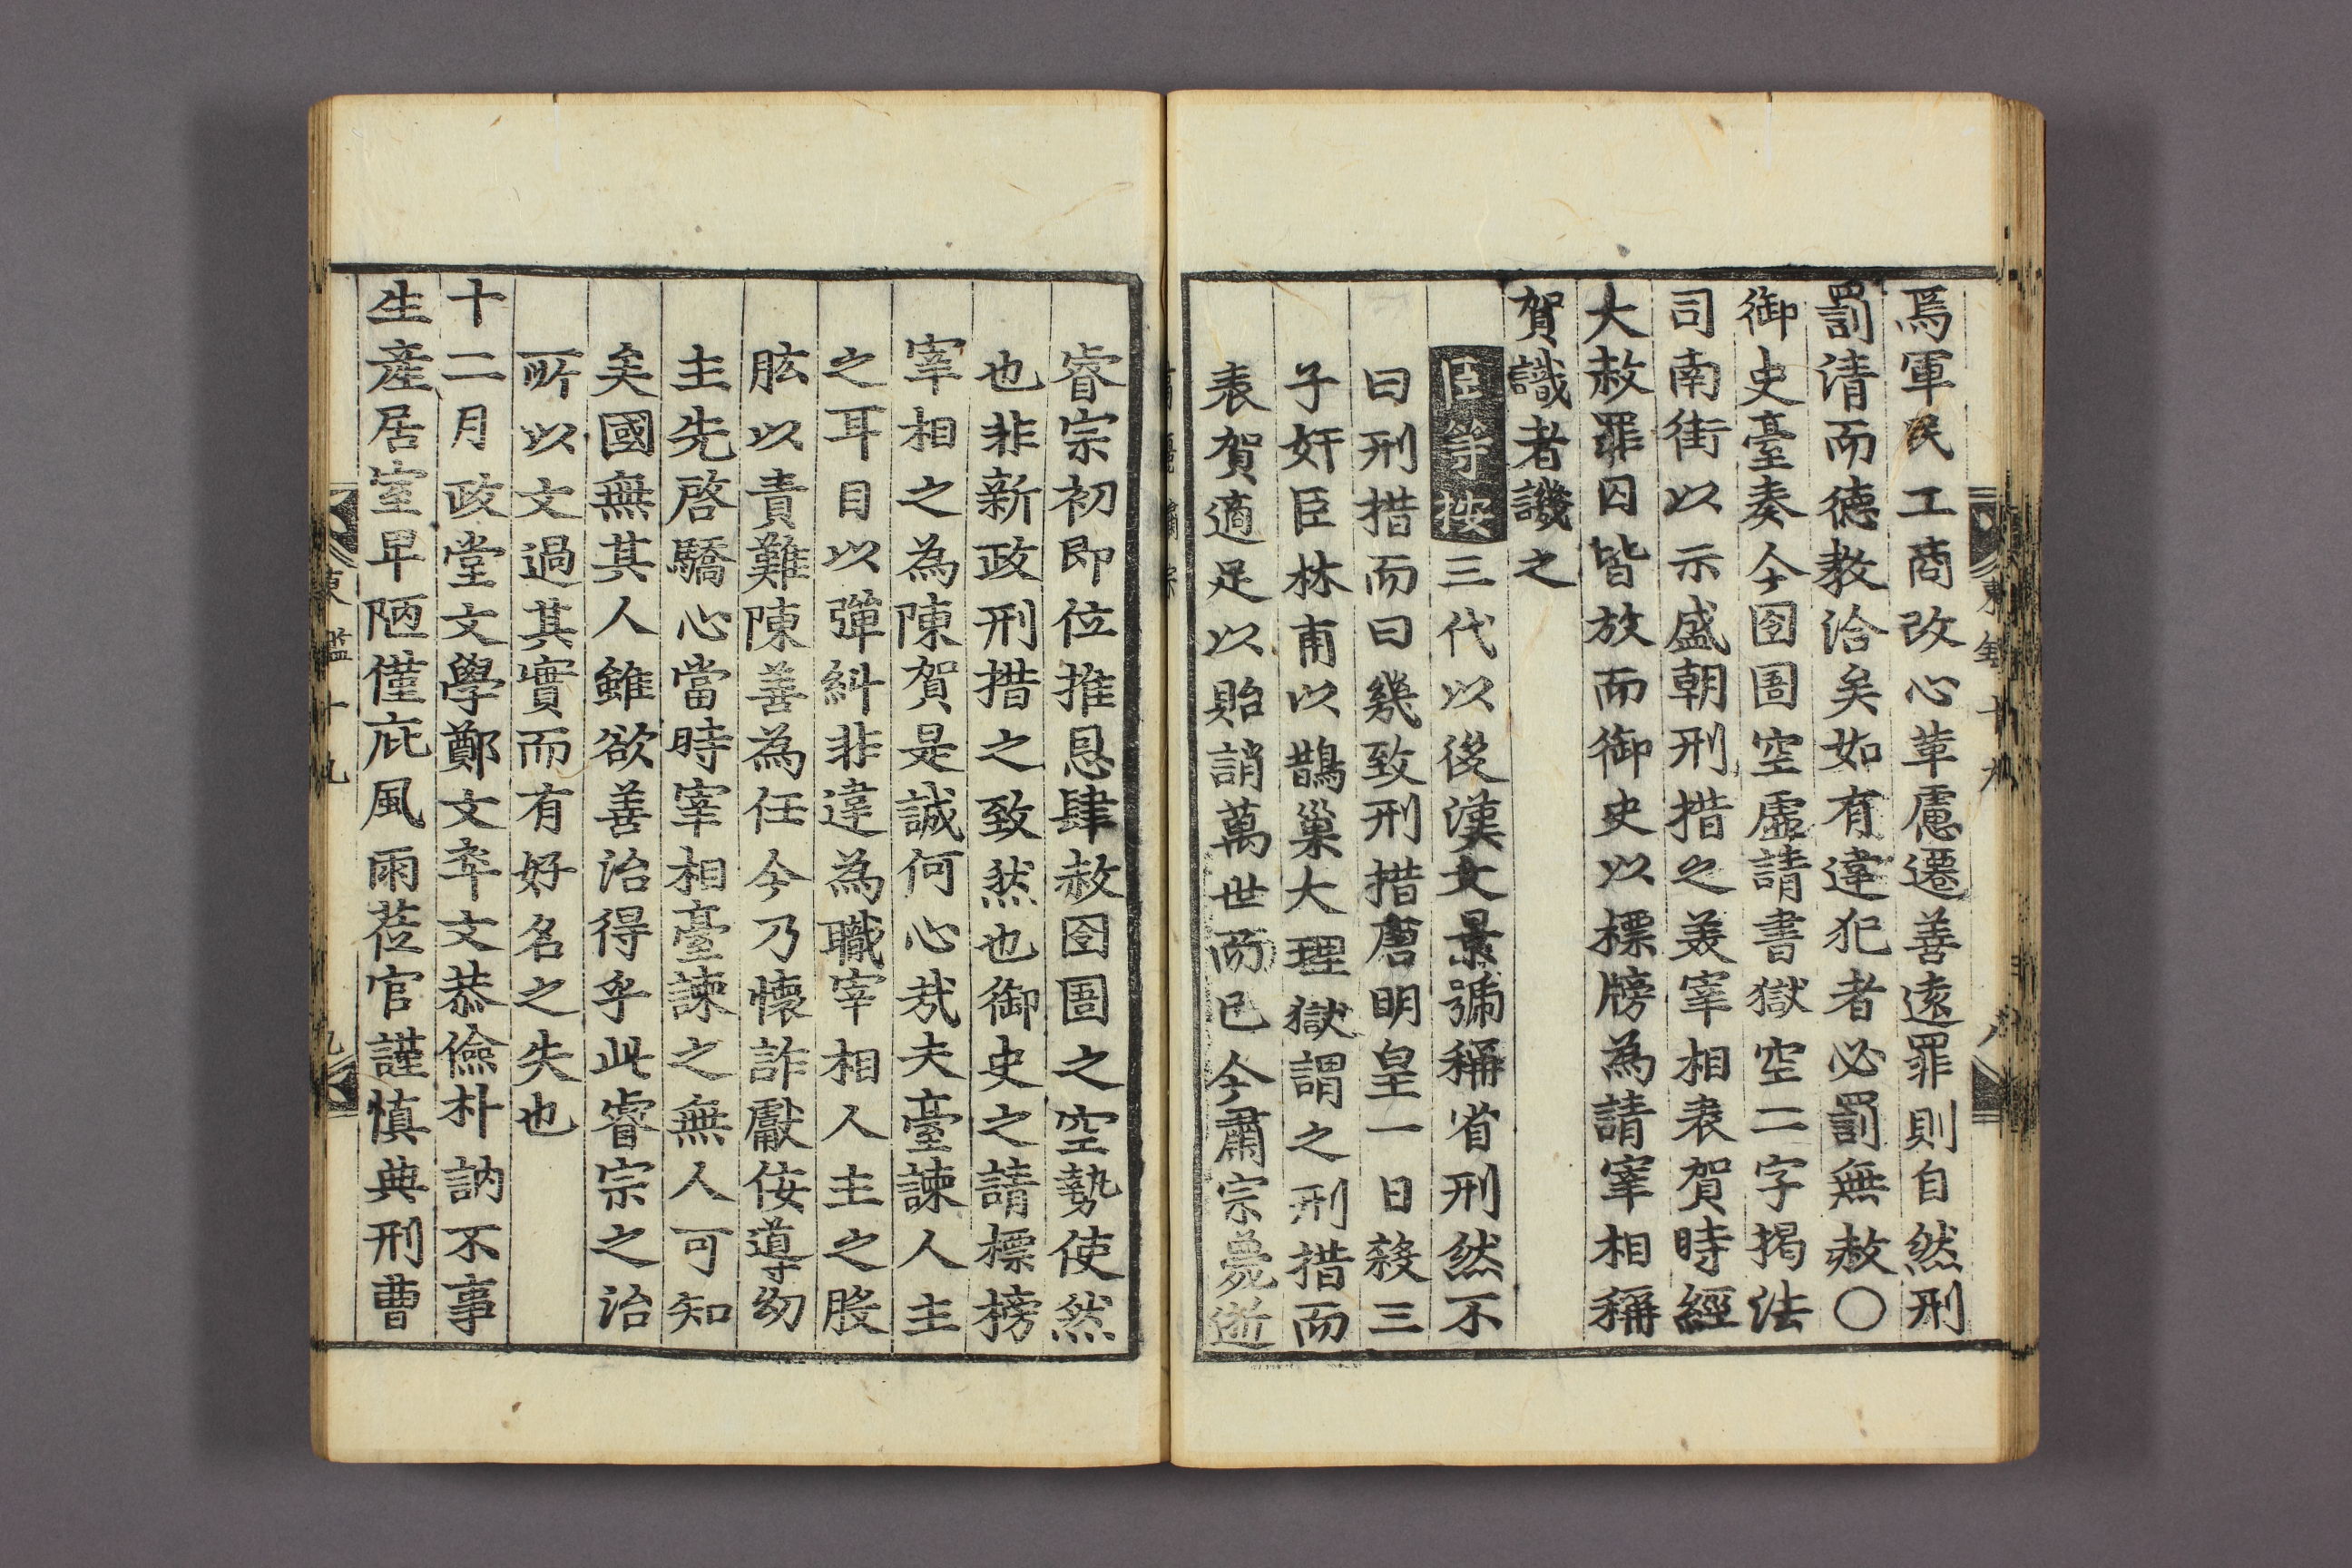 焉軍民工商改心革慮遷善遠罪則自然刑
罰清而德敎洽矣如有違犯者必罰無赦○
御史臺奏今囹圄空虛請書獄空二字揭法
司南街以示盛朝刑措之美宰相表賀時經
大赦罪囚皆放而御史以標牓為請宰相稱
賀識者譏之
臣等按三代以後漢文景號稱省刑然不
曰刑措而曰幾致刑措唐明皇一日殺三
子奸臣林甫以鵲巢大理獄謂之刑措而
表賀適足以貽誚萬世而已今肅宗薨逝
睿宗初即位推恩肆赦囹圄之空勢使然
也非新政刑措之致然也御史之請標榜
宰相之為陳賀是誠何心㦲夫臺諫人主
之耳目以彈糾非違為職宰相人主之股
肱以責難陳善為任今乃懷詐獻佞導幼
主先啓驕心當時宰相臺諫之無人可知
矣國無其人雖欲善治得乎此睿宗之治
所以文過其實而有好名之失也
十二月政堂文學鄭文卒文恭儉朴訥不事
生產居室卑陋僅庇風雨莅官謹慎典刑曹
東鑑十九
九